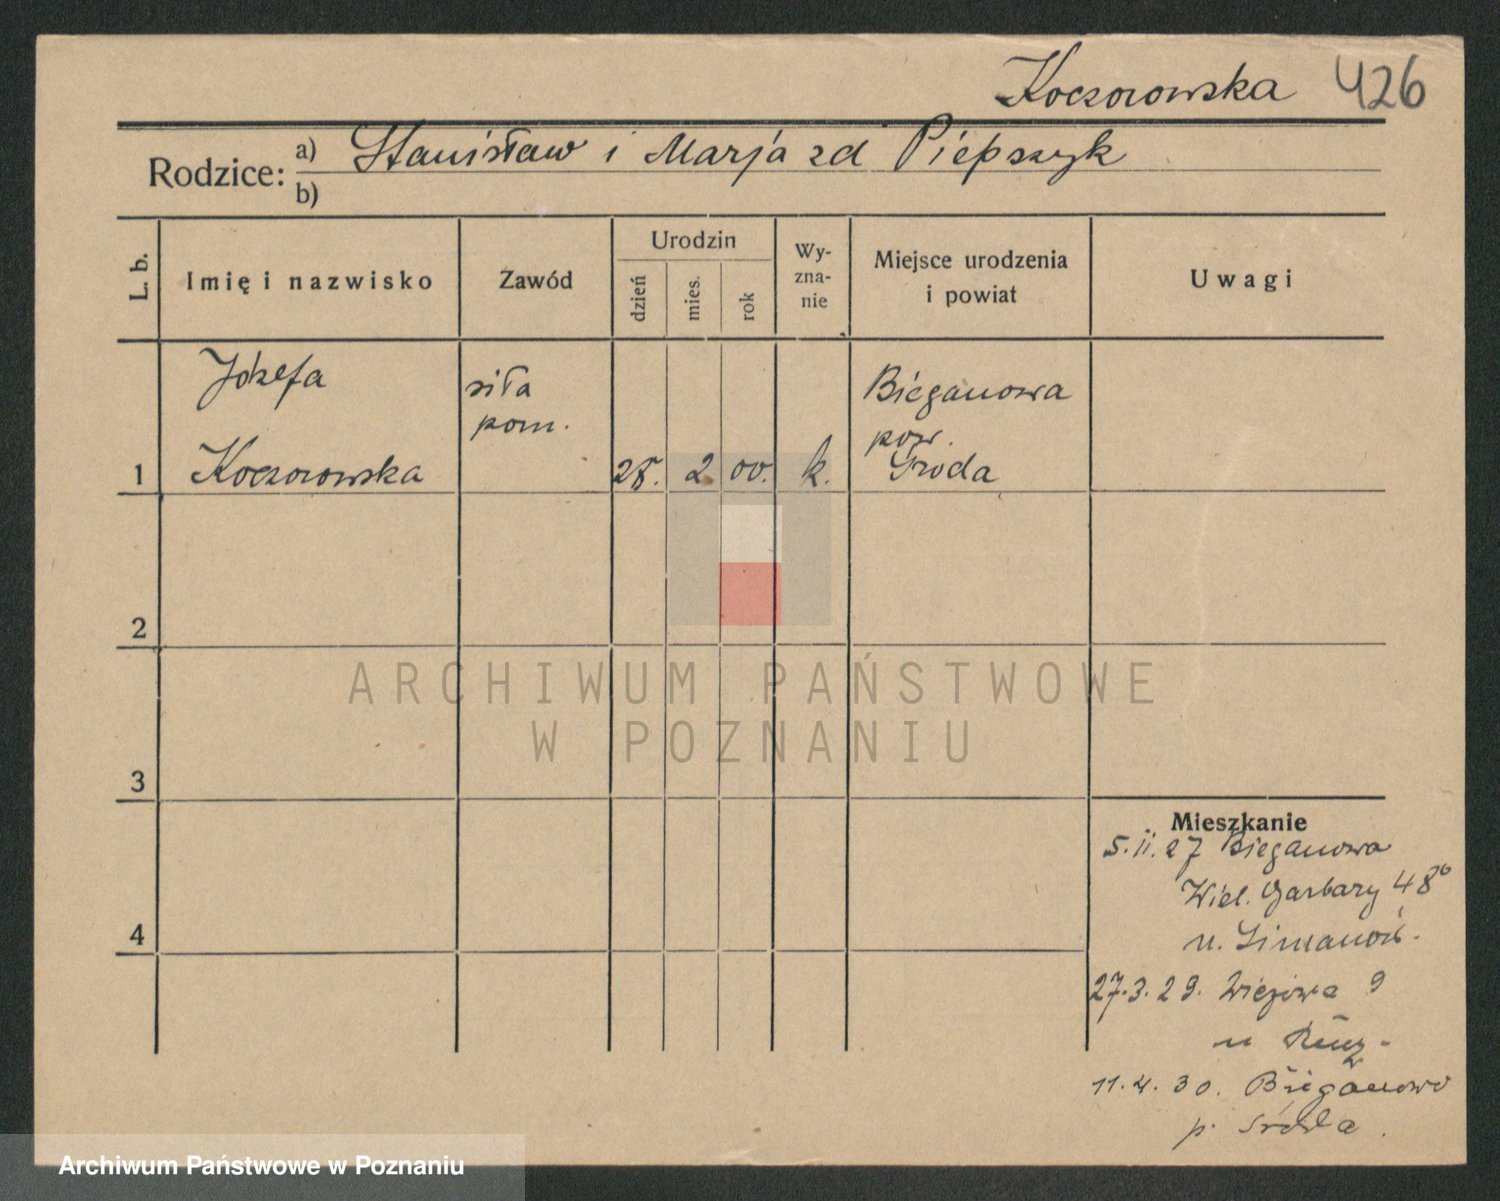 Koczorowska 426
Rodzice: a) Stanisław i Marja zd Piepszyk
b)
L. b.
Imię i nazwisko
Zawód
Urodzin
dzień
mies.
rok
Wy-
zna-
nie
Miejsce urodzenia
i powiat
Uwagi
Józefa
siła
pom.
Bieganowa
pow.
1 Koczorowska 25. 2. 00. k. Środa
2
3
4
Mieszkanie
5.II.27 Bieganowa
Wiel. Garbary 48
u.
27.3.29. 9
u
11.4.30. Bieganowo
p. Środa.
ARCHIWUM PAŃSTWOWE
W POZNANIU
Archiwum Państwowe w Poznaniu